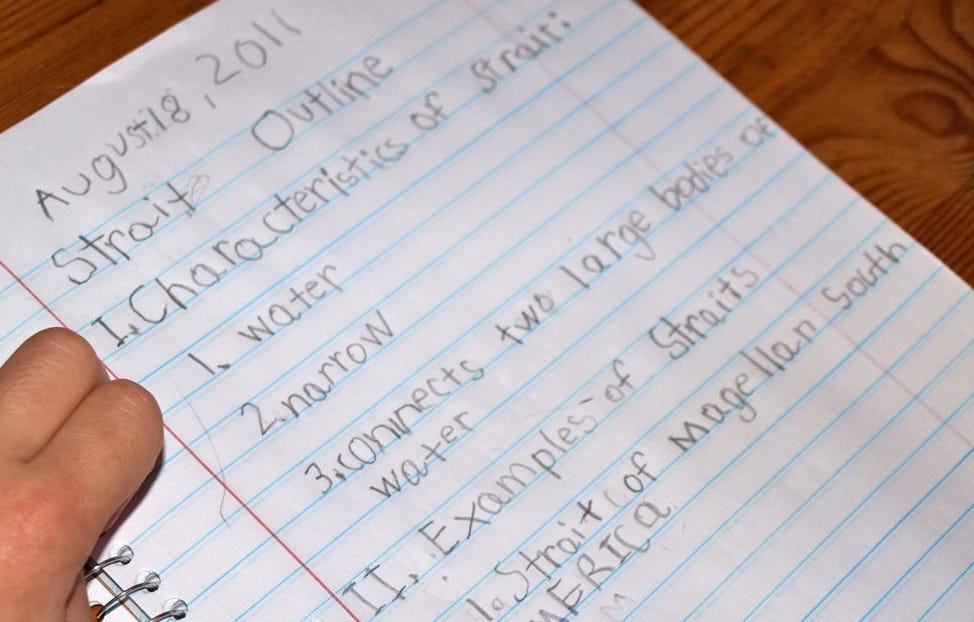 August 18, 2011
Strait Outline
I. Characteristics of strait:
1. water
2. narrow
3. connects two large bodies of
water
II. Examples of Straits
1. Strait of Magellan South
MERICA